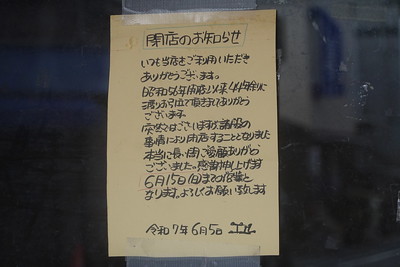 閉店のお知らせ
いつも当店をご利用いただき
ありがとうございます。
昭和56年開店以来44年余りに
渡りお引立て頂きまことにありがとう
ございます。
突然ではございますが、諸般の
事情により閉店することとなりました
本当に長い間ご愛顧ありがとう
ございました。感謝申し上げます
6月15日(日)までの営業と
なります。よろしくお願い致します
令和7年6月5日